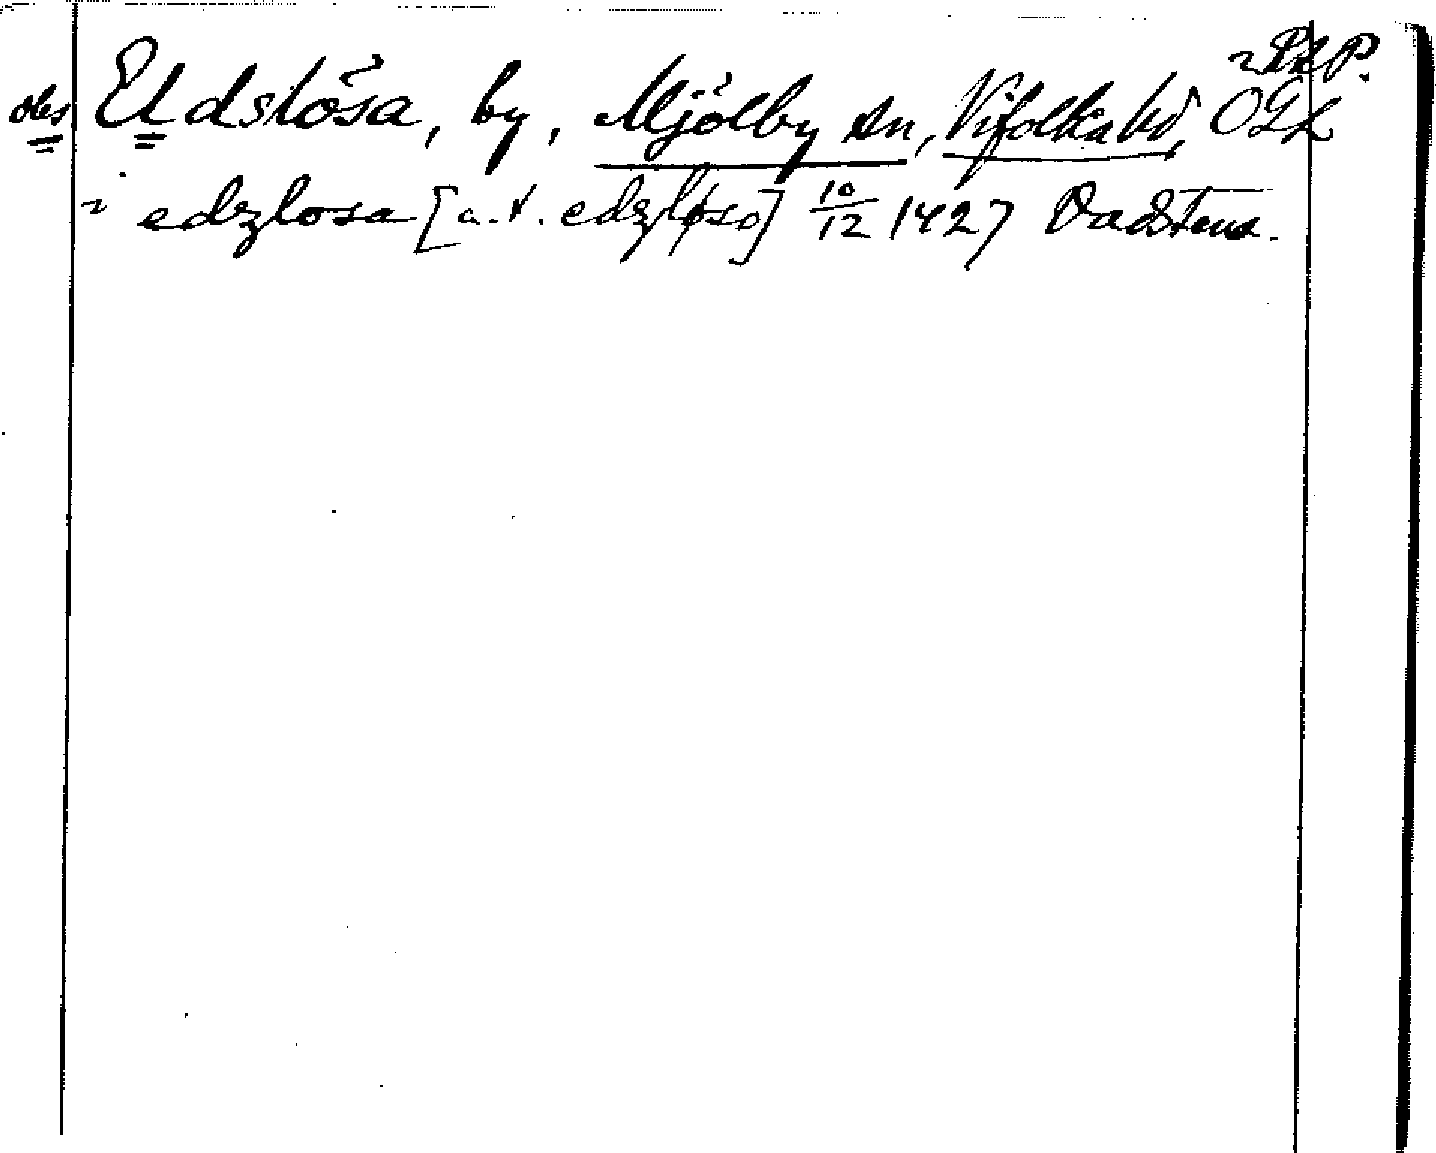 ~ RAP.
obs Eldslösa, by, Mjölby sn, Vifolka hd, ÖGL
~ edzlosa [a. v. edzløso] 10/12 1427 Vadstena.